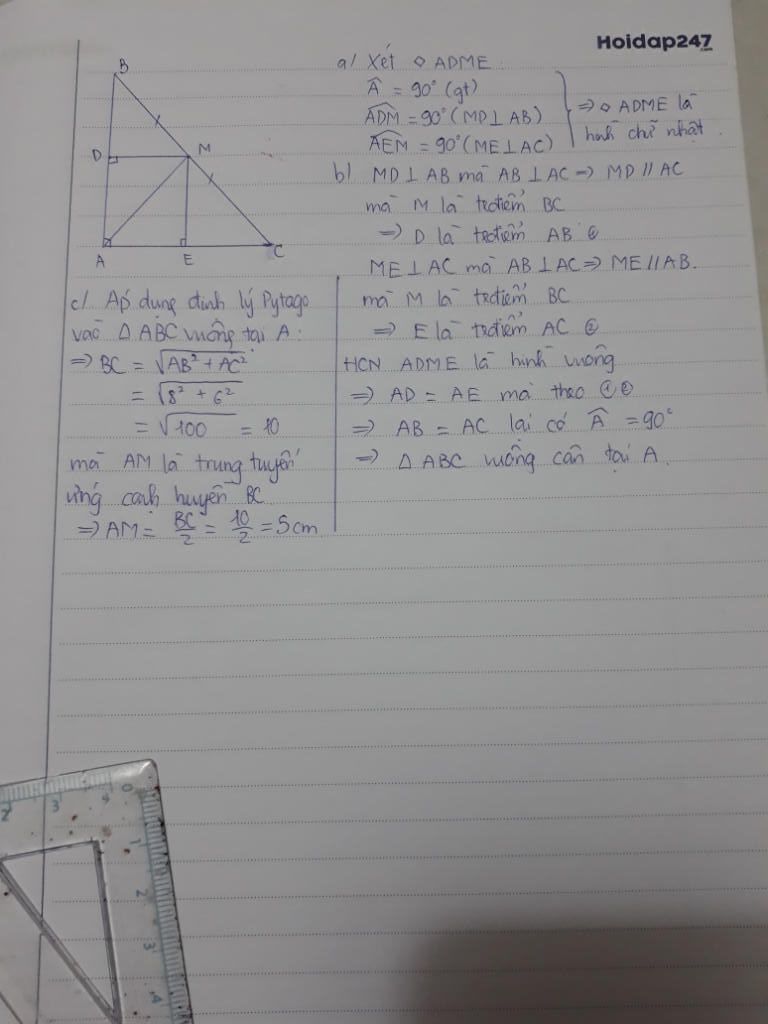 Hoidap247
.com
B
D
M
A
E
C
a/ Xét ◇ ADME
Â = 90° (gt)
ADM = 90° (MD ⊥ AB)
AEM = 90° (ME ⊥ AC)
=> ◇ ADME là
hình chữ nhật.
b) MD ⊥ AB mà AB ⊥ AC => MD // AC
mà M là trđiểm BC
=> D là trđiểm AB ①
ME ⊥ AC mà AB ⊥ AC => ME // AB.
mà M là trđiểm BC
=> E là trđiểm AC ②
HCN ADME là hình vuông
=> AD = AE mà theo ①②
=> AB = AC lại có Â = 90°
=> △ ABC vuông cân tại A.
c/ Áp dụng định lý Pytago
vào △ ABC vuông tại A:
=> BC = √AB² + AC²
= √8² + 6²
= √100 = 10
mà AM là trung tuyến
ứng cạnh huyền BC
=> AM = BC/2 = 10/2 = 5cm
2 3 4 0
1
2
3
4